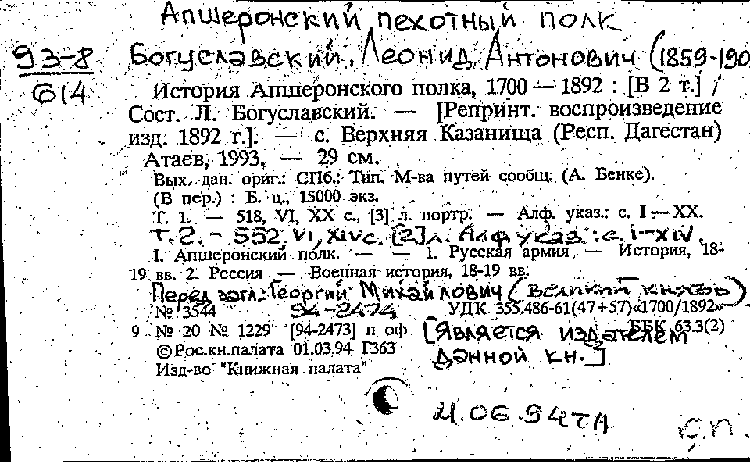 Апшеронский пехотный полк
93-8
614
Богуславский, Леонид Антонович (1859-190
История Апшеронского полка, 1700 — 1892 : [В 2 т.] /
Сост. Л. Богуславский. — [Репринт. воспроизведение
изд. 1892 г.]. — с. Верхняя Казанища (Респ. Дагестан)
Атаев, 1993, — 29 см.
Вых. дан. ориг.: СПб.: Тип. М-ва путей сообщ. (А. Бенке).
(В пер.) : Б. ц., 15000 экз.
Т. 1. — 518, VI, XX с., [3] л. портр. — Алф. указ.: с. I — XX.
Т. 2. - 552, VI, XIV с. [2] л. Алф указ: с. I-XIV.
I. Апшеронский полк. — — 1. Русская армия — История, 18-
19 вв. 2. Россия — Военная история, 18-19 вв.
Перед загл.: Георгий Михайлович (великий князь)
№ 3544 94-2474 УДК 355.486-61(47+57)«1700/1892»
9 № 20 № 1229 [94-2473] п оф ББК 63.3(2)
[Является издателем
данной кн.]
© Рос.кн.палата 01.03.94 Г363
Изд-во "Книжная палата"
И.06.94ТА